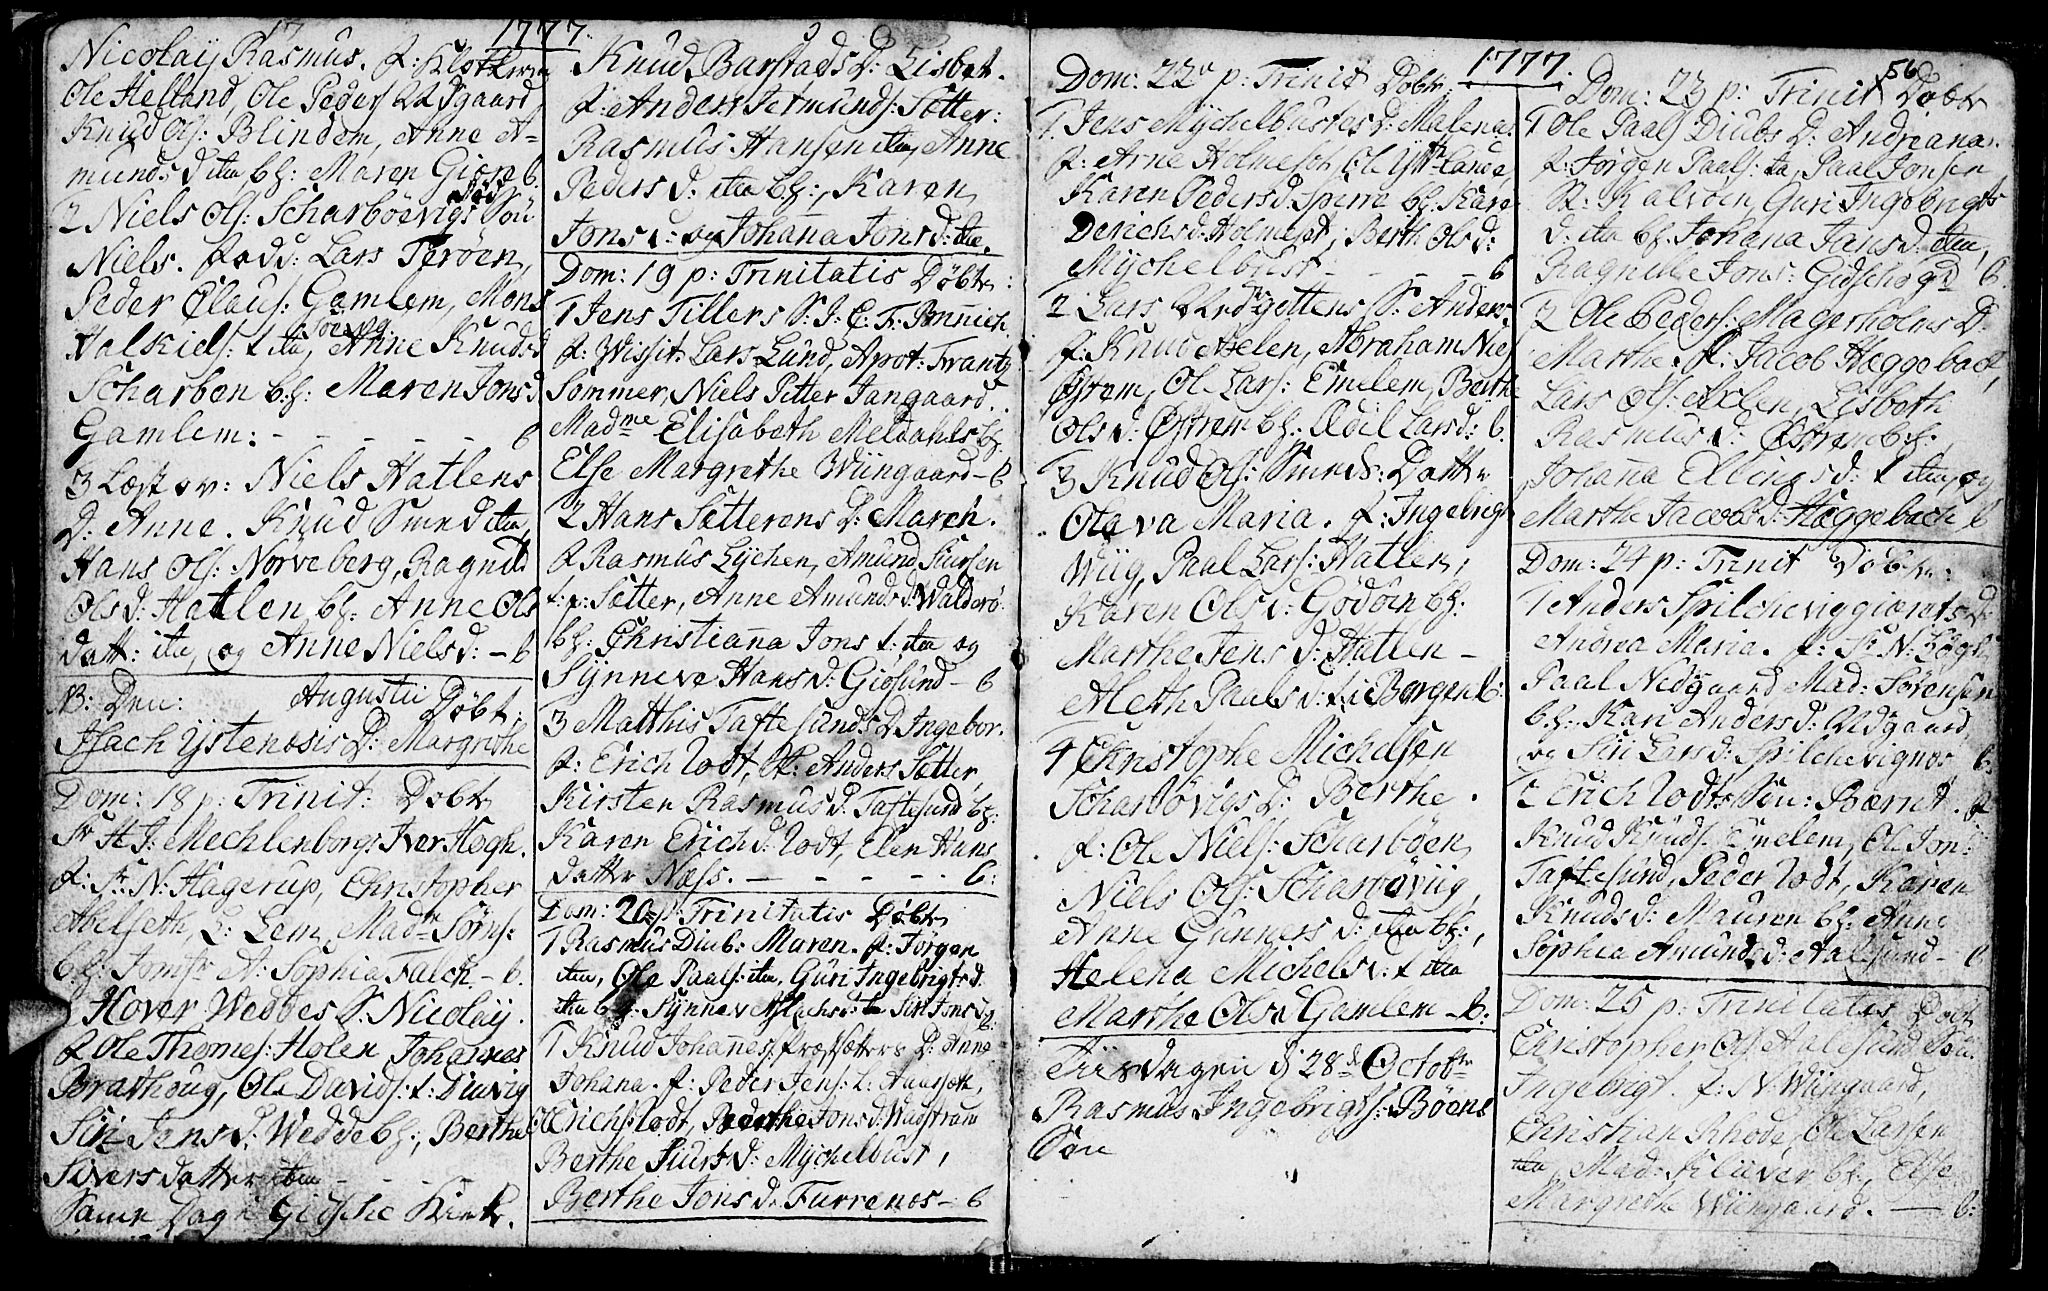 1777.
Nicolaij Rasmus. f:
Ole Helland, Ole Peders
Knud Ols: Blindem, Anne A-
munds d itm bf: Maren Giøre 6.
død
2 Niels Ols: Scharböevigs Søn
Niels. fadd: Lars Terøen,
Peder Claus: Gamlem, Mons
Halkiels: t itm, Anne Knudsd
Scharböen bf: Maren Jonsd
Gamlem: - - - - - 6
3 Niels Hatlens
D: Anne. Knud Smend itm,
Hans Ols: Norveberg, Ragnild
Olsd: Hatlen bf: Anne Ols
datt: itm, og Anne Nielsd: - 6
Augustii Døbt:
Isach Ijstenøsis D: Margrethe
Dom: 18 p: Trinit: Døbt
Sr H J: Mechlenborgs Iver Høgh.
f: Sr N: Hagerup, Christopher
Abelseth, L: Lem, Madm Sørns:
bf: Jomfr A: Sophia Falch - 6.
1 Hover Weddes S: Nicolaij.
f Ole Thomes: Holen Johannes
Brathoug, Ole Davids: t: Diuvig
Siri Jens d: Wedde bf:, Berthe
Sivers datter itm - - -
Samme Dag i Gidsche Kirke.
Knud Barstads D: Lisbet.
f: Anders Jetmunds: Sætter:
Rasmus Hansen itm, Anne
Peders d: itm bf:, Karen
Jons d: og Johanna Jons d: itm.
Dom: 19 p: Trinitatis Døbte:
1 Jens Tillers S: J: C: F: Brunnich
f: Wissit: Lars Lund, Apot: Frantz
Sommer, Niels Pitter Jangaard.
Madme Elisabeth Meldahls bf:
Else Margrethe Wiingaard - 6
2 Hans Sætterens D: Maren.
f Rasmus Lijchen, Amund Siursen
t: p: Sætter, Anne Amunds d: Walderø.
bf: Christianna Jons t: itm og
Sijnneve Hans d: Giøsund - 6
3 Matthis Taftesunds D Ingebor.
f: Erich Rodt, Anders Sætter,
Kirsten Rasmus d: Taftesund bf:
Karen Erich d: Rodt, Elen Hans
datter Næss. - - - - - 6:
Dom: 20 p: Trinitatis Døbt
1 Rasmus Diub: Maren. f: Jørgen
itm, Ole Paals: itm, Guri Ingebrigts d.
itm bf: Sijnnev Aslachs d: itm Siri Jons d 6:
1 Knud Johannes: D: Anne
Johana. f: Peder Jens: L: Aarseth,
Erich Rodt, Berthe Jons d: Wadstrand
Berthe Siurs d: Mijchelbust,
Berthe Jons d. Furrenes - 6
1777.
56
Dom: 22 p: Trinit Døbt
1 Jens Mijchelbustes d: Malena.
f: Arne Holmeset, Ole Ijttreland,
Karen Peders d. Sperre bf. Kari
Derichs d: Holmeset, Berth Ols d:
Mijchelbust - - - - 6
2 Lars Nedregottens S: Anders
f: Knud Axelen, Abraham Niels
Østrem, Ole Lars: Emelem, Berthe
Ols d: Østrem bf: Ædil Larsd: 6.
3 Knud Ols: Smends: Datter
Olava Maria. f: Ingebrigt
Wiig, Paal Lars: Hatlen,
Karen Ols d: Godøen bf:
Marthe Jens d: Hatlen -
Aleth Paals d: t: Borgen 6:
4 Christophe Michelsen
Scharbövigs D: Berthe.
f: Ole Niels: Scharbøen,
Niels Ols: Scharbøviig,
Anne Gunners d: itm bf:,
Helena Michels d: t itm
Marthe Ols d Gamlem - 6:
Tiisdagen d 28de Octobr
Rasmus Ingebrigts: Böens
Søn
Dom: 23 p: Trinit Døbt
1 Ole Paals Diubs D: Andreana.
f: Jørgen Paals: ta, Paal Jonsen
St: Kalvøen, Guri Ingebrigts
d: itm bf: Johana Jans d: itm,
Ragnille Jons: Gidschøgd 6.
2 Ole Peders: Magerholms D:
Marthe. f: Jacob Hæggebach,
Lars Ols: Axlen, Lisbeth
Rasmus d: Østrem bf:
Johanna Ellings d: t itm, og
Marthe Jacobs d: Hæggebach 6
Dom: 24 p: Trinit Døbt:
1 Anders Spilchevig D:
Andrea Maria. f: Sr N: Høgh
Paal Nedgaard Mad: Sørensen
bf: Kari Anders d: Nedgaard
og Siri Lars d: Spilchevignes 6:
2 Erich Rodts Søn: Bærnt. f
Knud Knuds. Emelem, Ole Jon:
Taftesund, Peder Rodt, Karen
Knuds d: Mauren bf: Anne
Sophia Amunds d: Aalesund - 6
Dom: 25 p: Trinitatis Døbt
Christopher Ols Aalesund Søn
Ingebrigt. f: N: Wiingaard,
Christian Rhode, Ole Larsen
itm, Mad: Klüver bf:, Else
Margrethe Wiingaard. - 6: